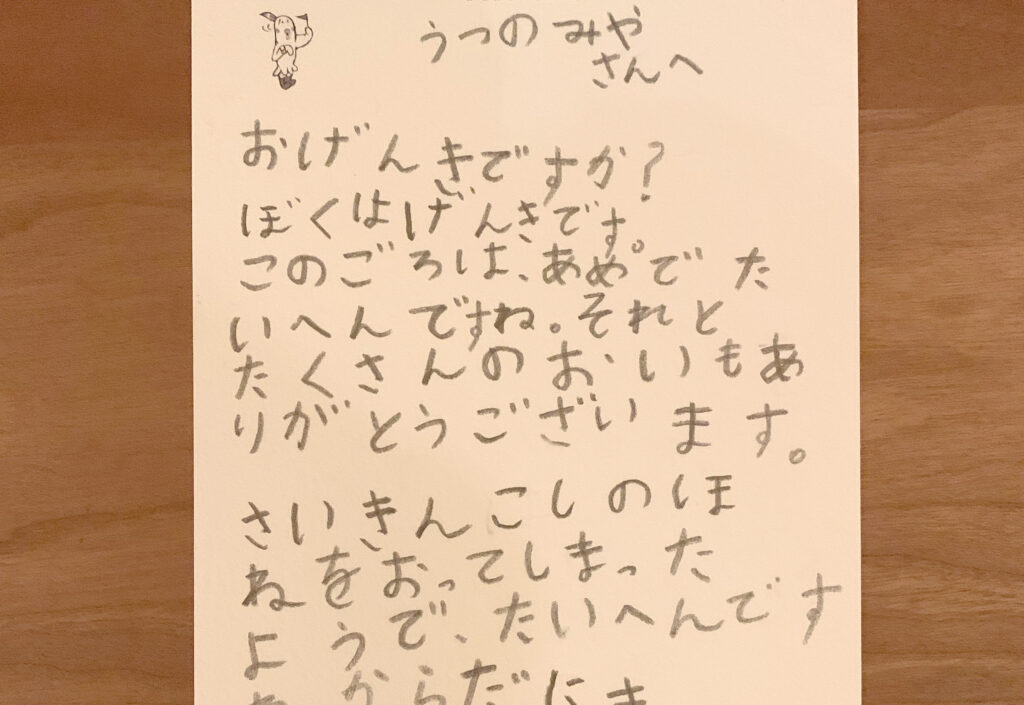 うつのみや
さんへ
おげんきですか?
ぼくはげんきです。
このごろは、あめでた
いへんですね。それと
たくさんのおいもあ
りがとうございます。
さいきんこしのほ
ねをおってしまった
ようで、たいへんです
ね からだにき